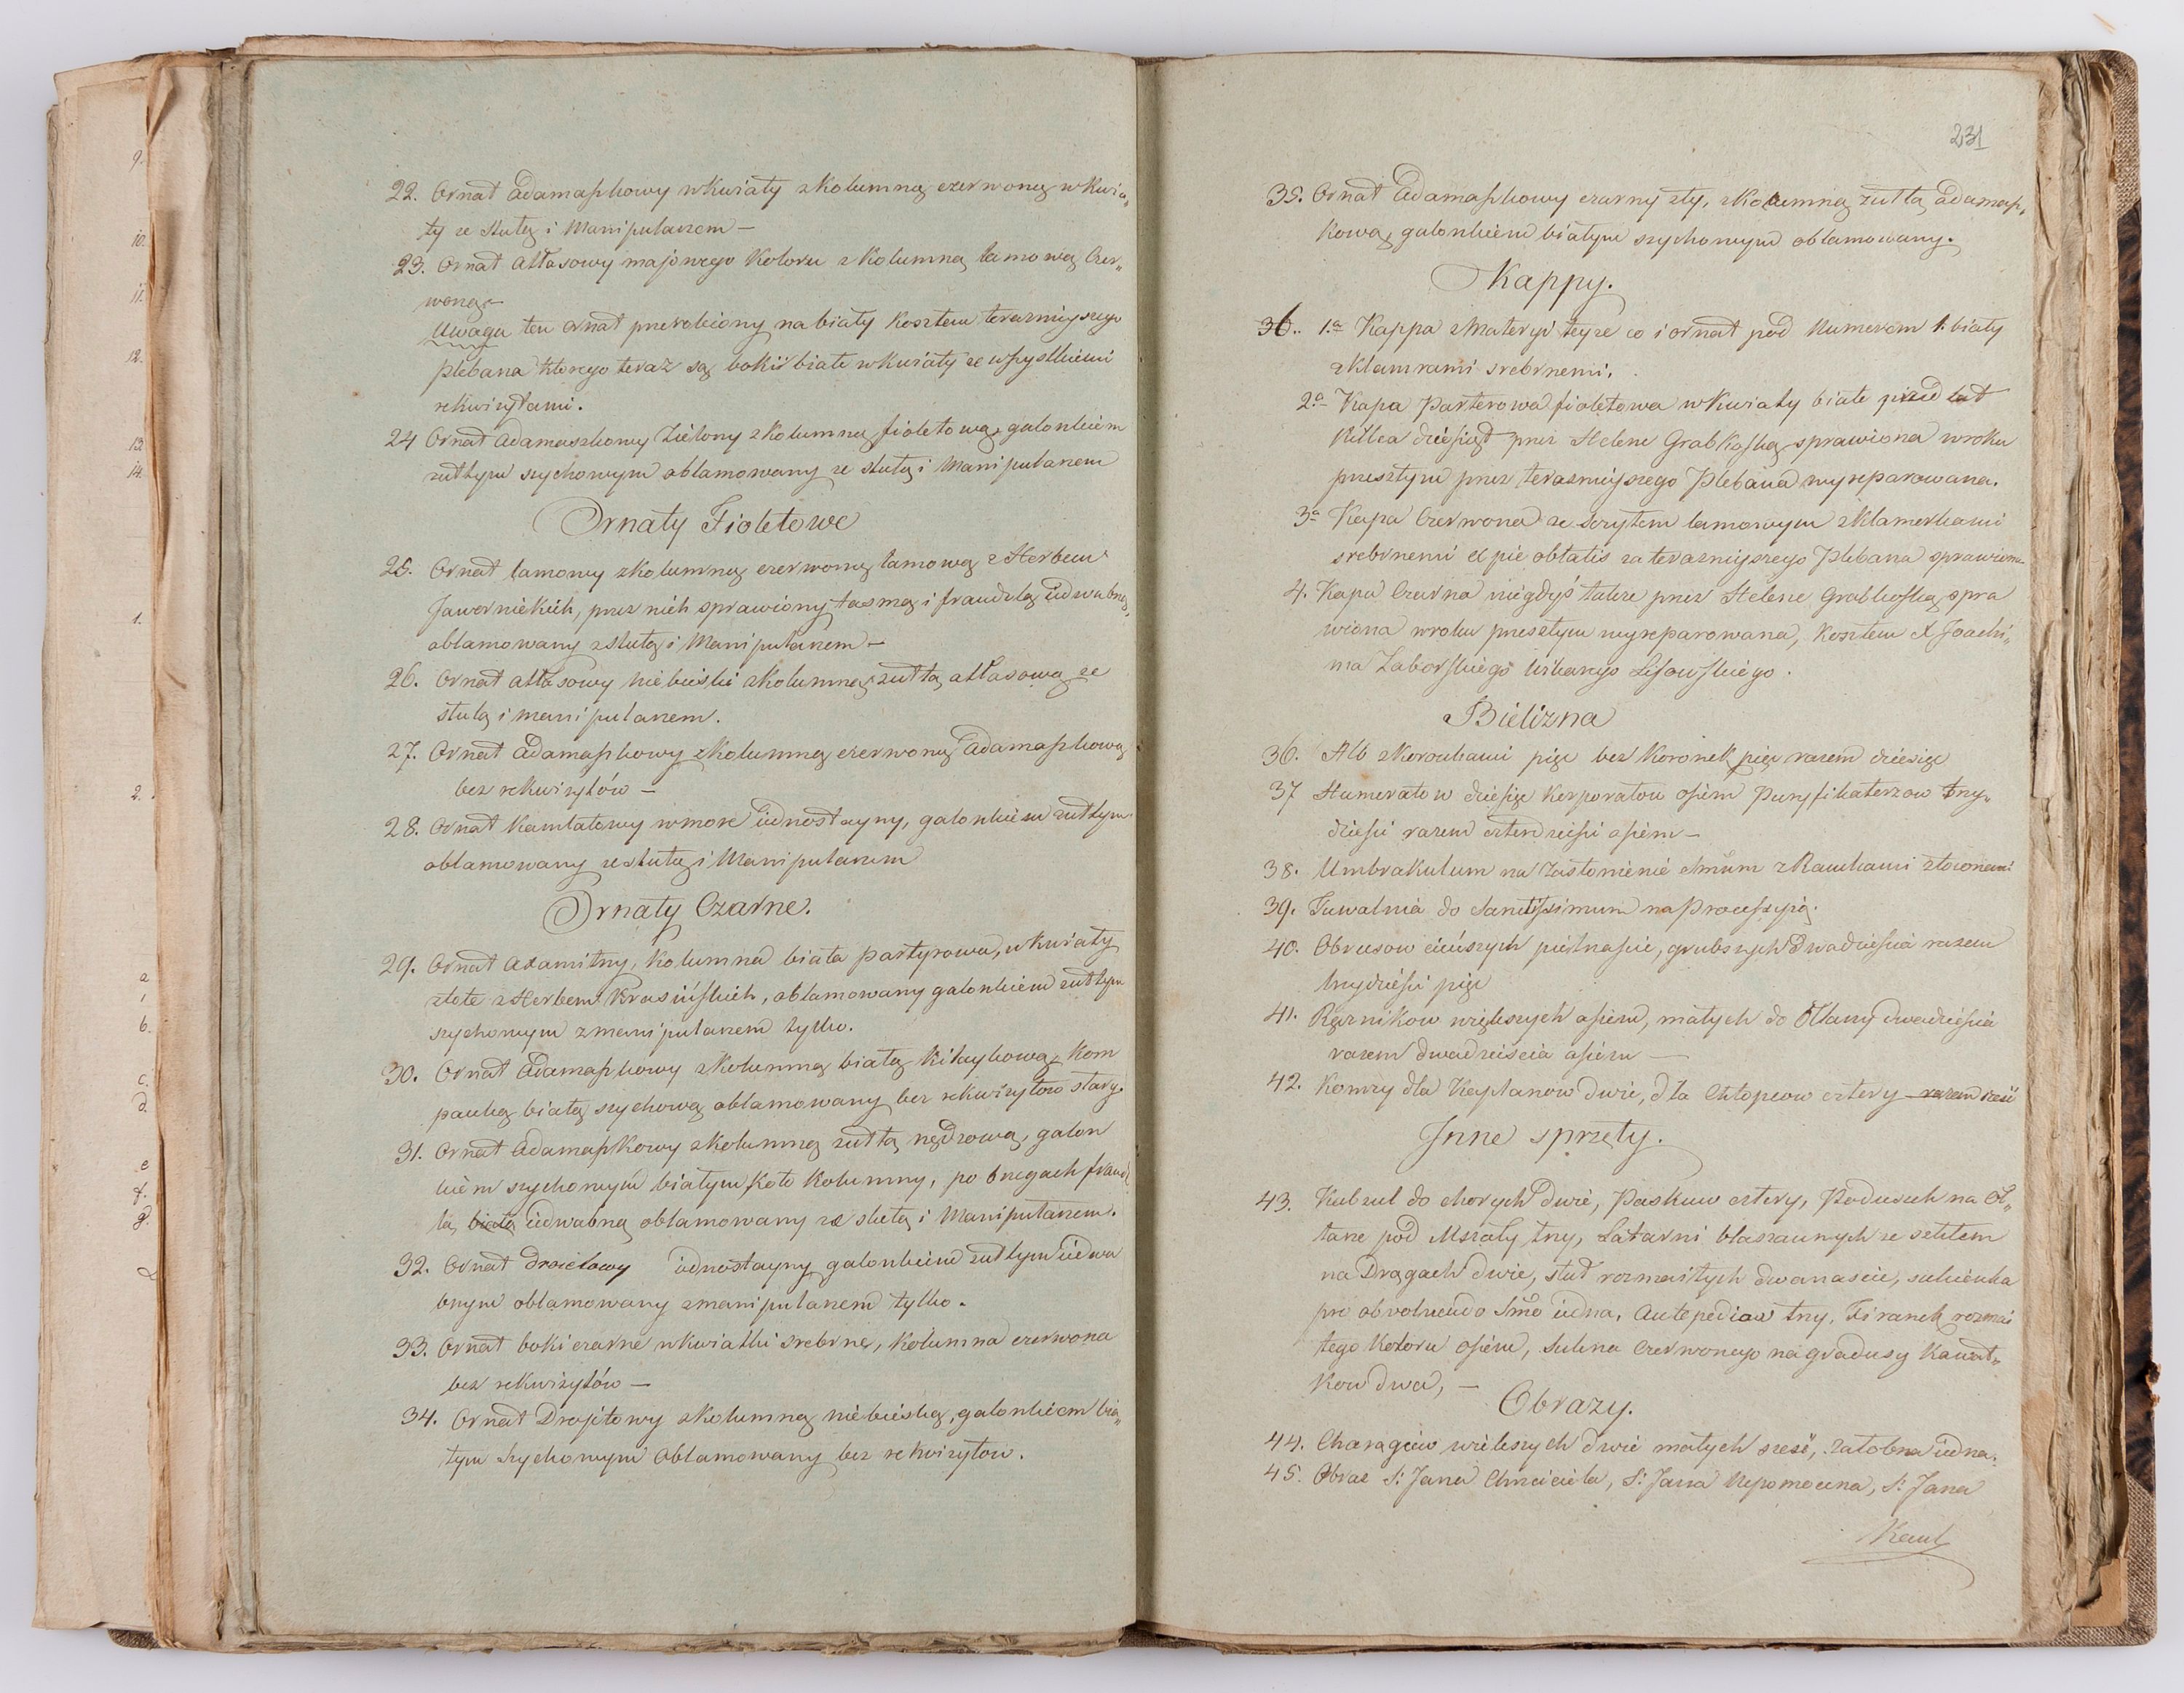 22. Ornat adamaszkowy w kwiaty z kolumną czerwoną w kwia„
ty ze stułą i Manipularzem —
23. Ornat atłasowy majowego koloru z kolumną lamową Czer„
woną —
Uwaga ten ornat przerobiony na biały kosztem teraznieyszego
plebana którego teraz są boki białe w kwiaty ze wszystkiemi
rekwizytami.
24 Ornat adamaszkowy Zielony z kolumną fioletową, galonkiem
żółtym szychowym oblamowany ze stułą i Manipularzem
Ornaty Fioletowe
25. Ornat lamowy z kolumną czerwoną lamową z Herbem
Jawornickich, przez nich sprawiony tasmą i frandzlą iedwabną,
oblamowany z stułą i Manipularzem —
26. Ornat atłasowy niebieski z kolumną żółtą atłasową ze
stułą i manipularzem.
27. Ornat adamaszkowy z kolumną czerwoną adamaszkową
bez rekwizytów —
28. Ornat kamlatowy w more iednostayny, galonkiem żółtym
oblamowany ze stułą i Manipularzem
Ornaty Czarne.
29. Ornat axamitny, kolumna biała partyrowa, w kwiaty
złote z Herbem Krasińskich, oblamowany galonkiem żółtym
szychowym z manipularzem tylko.
30. Ornat adamaszkowy z kolumną białą kitaykową, kom
panką białą szychową oblamowany bez rekwizytów stary.
31. Ornat adamaszkowy z kolumną żółtą nędzową, galon
kiem szychowym białym koło kolumny, po brzegach frandz
lą białą iedwabną oblamowany ze stułą i Manipularzem.
32. Ornat droietowy iednostayny galonkiem żółtym iedwa
bnym oblamowany z manipularzem tylko.
33. Ornat boki czarne w kwiatki srebrne, kolumna czerwona
bez rekwizytów —
34. Ornat Drojetowy z kolumną niebieską, galonkiem bia„
łym szychowym oblamowany bez rekwizytow.
231
35. Ornat adamaszkowy czarny zły, z kolumną żółtą adamasz„
kową, galonkiem białym szychowym oblamowany.
Kappy.
36.. 1.a Kappa z Materyi teyże co i ornat pod Numerem 1. biały
z klamrami srebrnemi.
2.a Kapa Parterowa fioletowa w kwiaty białe przed lat
kilka dziesiąt przez Helenę Grabkoską sprawiona w roku
przeszłym przez teraznieyszego Plebana wyreparowana.
3.a Kapa Czerwona ze szczytem lamowym z klamerkami
srebrnemi ex pie oblatis za teraznieyszego Plebana sprawiona
4. Kapa Czarna niegdyś także przez Helenę Grabkoską spra
wiona w roku przeszłym wyreparowana, kosztem X Joachi„
ma Zaborskiego Wikarego Lisowskiego.
Bielizna
36. Alb z koronkami pięć bez koronek pięć razem dziesięć
37 Humerałow dziesięć korporałow osiem Puryfikaterzow trzy„
dzieści razem czterdzieści osiem —
38. Umbrakulum na zasłonienie Smum z Rankami złoconemi
39. Tuwalnia do Sanctissimum na Processyią.
40. Obrusow cieńszych pietnaście, grubszych dwadzieścia razem
trzydzieści pięć
41. Ręcznikow większych osiem, małych do Ołtarzy dwadzieścia
razem dwadzieścia osiem —
42. Komży dla Kapłanow dwie, dla Chłopcow cztery — razem sześć
Inne sprzęty.
43. Kubzul do chorych dwie, Paskow cztery, Poduszek na Oł„
tarze pod Mszały trzy, Latarni blaszannych ze szkłem
na Drągach dwie, stuł rozmaitych dwanascie, sukienka
pro obvoluendo Smo iedna, Antepediow trzy, Firanek rozmai
tego koloru osiem, Sukna Czerwonego na gradusy kawał„
kow dwa, —
Obrazy.
44. Chorągiew większych dwie małych sześć, żałobna iedna.
45. Obraz S: Jana Chrzciciela, S: Jana Nepomocena, S: Jana